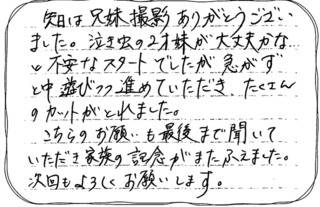 先日は兄妹撮影ありがとうござい
ました。泣き虫の2才妹が大丈夫かな
と不安なスタートでしたが急がず
と中遊びつつ進めていただき、たくさん
のカットがとれました。
こちらのお願いも最後まで聞いて
いただき家族の記念がまたふえました。
次回もよろしくお願いします。